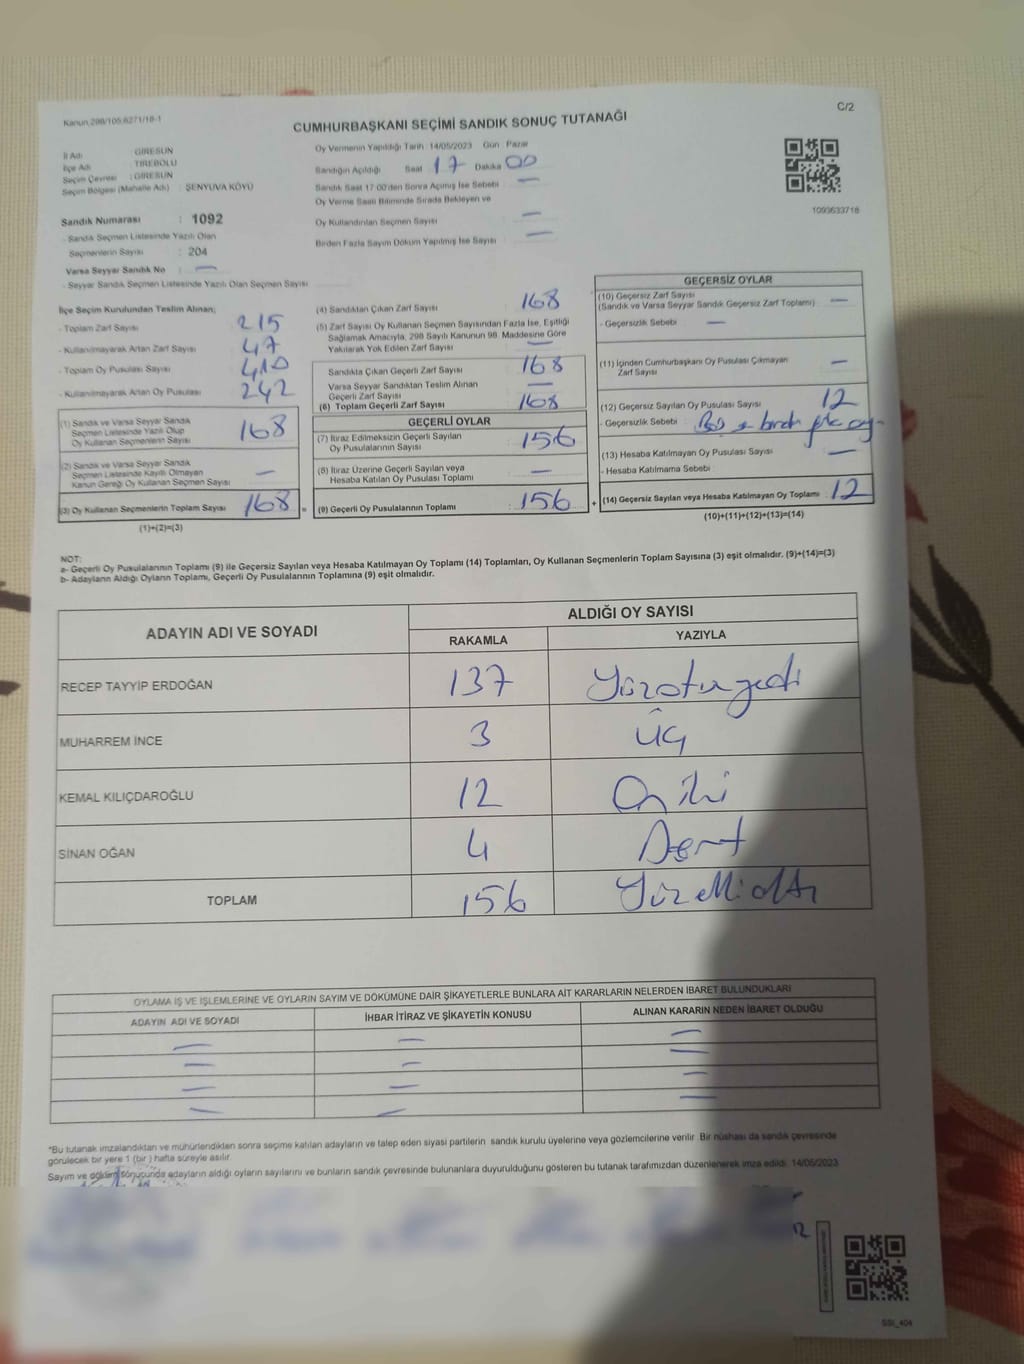 Kanun 298/105.6271/18-1
C/2
CUMHURBAŞKANI SEÇİMİ SANDIK SONUÇ TUTANAĞI
İl Adı : GİRESUN
İlçe Adı : TİREBOLU
Seçim Çevresi : GİRESUN
Seçim Bölgesi (Mahalle Adı) : ŞENYUVA KÖYÜ
Sandık Numarası : 1092
- Sandık Seçmen Listesinde Yazılı Olan
Seçmenlerin Sayısı : 204
Varsa Seyyar Sandık No : —
- Seyyar Sandık Seçmen Listesinde Yazılı Olan Seçmen Sayısı
Oy Vermenin Yapıldığı Tarih 14/05/2023 Gün Pazar
Sandığın Açıldığı Saat 17 Dakika 00
Sandık Saat 17:00'den Sonra Açılmış İse Sebebi —
Oy Verme Saati Bitiminde Sırada Bekleyen ve
Oy Kullandırılan Seçmen Sayısı —
Birden Fazla Sayım Döküm Yapılmış İse Sayısı —
1093633718
İlçe Seçim Kurulundan Teslim Alınan;
- Toplam Zarf Sayısı 215
- Kullanılmayarak Artan Zarf Sayısı 47
- Toplam Oy Pusulası Sayısı 410
- Kullanılmayarak Artan Oy Pusulası 242
(1) Sandık ve Varsa Seyyar Sandık
Seçmen Listesinde Yazılı Olup
Oy Kullanan Seçmenlerin Sayısı 168
(2) Sandık ve Varsa Seyyar Sandık
Seçmen Listesinde Kayıtlı Olmayan
Kanun Gereği Oy Kullanan Seçmen Sayısı —
(3) Oy Kullanan Seçmenlerin Toplam Sayısı 168 =
(1)+(2)=(3)
(4) Sandıktan Çıkan Zarf Sayısı 168
(5) Zarf Sayısı Oy Kullanan Seçmen Sayısından Fazla İse, Eşitliği
Sağlamak Amacıyla, 298 Sayılı Kanunun 98. Maddesine Göre
Yakılarak Yok Edilen Zarf Sayısı —
Sandıkta Çıkan Geçerli Zarf Sayısı 168
Varsa Seyyar Sandıktan Teslim Alınan
Geçerli Zarf Sayısı —
(6) Toplam Geçerli Zarf Sayısı 168
GEÇERLİ OYLAR
(7) İtiraz Edilmeksizin Geçerli Sayılan
Oy Pusulalarının Sayısı 156
(8) İtiraz Üzerine Geçerli Sayılan veya
Hesaba Katılan Oy Pusulası Toplamı —
(9) Geçerli Oy Pusulalarının Toplamı : 156 +
GEÇERSİZ OYLAR
(10) Geçersiz Zarf Sayısı
(Sandık ve Varsa Seyyar Sandık Geçersiz Zarf Toplamı) —
- Geçersizlik Sebebi —
(11) İçinden Cumhurbaşkanı Oy Pusulası Çıkmayan
Zarf Sayısı —
(12) Geçersiz Sayılan Oy Pusulası Sayısı 12
- Geçersizlik Sebebi :
(13) Hesaba Katılmayan Oy Pusulası Sayısı —
- Hesaba Katılmama Sebebi
(14) Geçersiz Sayılan veya Hesaba Katılmayan Oy Toplamı : 12
(10)+(11)+(12)+(13)=(14)
NOT:
a- Geçerli Oy Pusulalarının Toplamı (9) ile Geçersiz Sayılan veya Hesaba Katılmayan Oy Toplamı (14) Toplamları, Oy Kullanan Seçmenlerin Toplam Sayısına (3) eşit olmalıdır. (9)+(14)=(3)
b- Adayların Aldığı Oyların Toplamı, Geçerli Oy Pusulalarının Toplamına (9) eşit olmalıdır.
ADAYIN ADI VE SOYADI ALDIĞI OY SAYISI
RAKAMLA YAZIYLA
RECEP TAYYİP ERDOĞAN 137 Yüzotuzyedi
MUHARREM İNCE 3 üç
KEMAL KILIÇDAROĞLU 12 On iki
SİNAN OĞAN 4 Dört
TOPLAM 156 Yüzelli altı
OYLAMA İŞ VE İŞLEMLERİNE VE OYLARIN SAYIM VE DÖKÜMÜNE DAİR ŞİKAYETLERLE BUNLARA AİT KARARLARIN NELERDEN İBARET BULUNDUKLARI
ADAYIN ADI VE SOYADI İHBAR İTİRAZ VE ŞİKAYETİN KONUSU ALINAN KARARIN NEDEN İBARET OLDUĞU
— — —
— — —
— — —
— — —
*Bu tutanak imzalandıktan ve mühürlendikten sonra seçime katılan adayların ve talep eden siyasi partilerin sandık kurulu üyelerine veya gözlemcilerine verilir. Bir nüshası da sandık çevresinde
görülecek bir yere 1 (bir) hafta süreyle asılır.
Sayım ve döküm sonucunda adayların aldığı oyların sayılarını ve bunların sandık çevresinde bulunanlara duyurulduğunu gösteren bu tutanak tarafımızdan düzenlenerek imza edildi. 14/05/2023
SSI_404